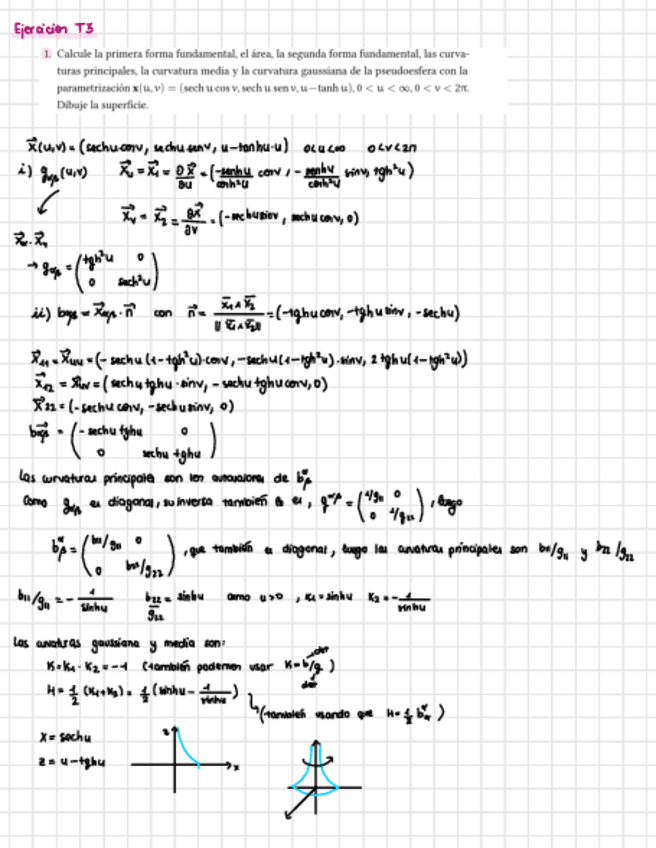 Ejercicios T3
1. Calcule la primera forma fundamental, el área, la segunda forma fundamental, las curva-
turas principales, la curvatura media y la curvatura gaussiana de la pseudoesfera con la
parametrización x(u, v) = (sech u cos v, sech u sen v, u−tanh u), 0 < u < ∞, 0 < v < 2π.
Dibuje la superficie.
x⃗(u,v) = (sechu cosv, sechu senv, u-tanhu·u) 0<u<∞ 0<v<2π
i) gαβ(u,v) x⃗u = x⃗1 = ∂x⃗/∂u = (-senhu/cosh²u cosv, -senhu/cosh²u sinv, tgh²u)
x⃗v = x⃗2 = ∂x⃗/∂v = (-sechu sinv, sechu cosv, 0)
x⃗u·x⃗v
→ gαβ = (tgh²u 0
0 sech²u)
ii) bαβ = x⃗αβ·n⃗ con n⃗ = x⃗1∧x⃗2 / ||x⃗1∧x⃗2|| = (-tghu cosv, -tghu sinv, -sechu)
x⃗11 = x⃗uu = (-sechu(1-tgh²u)·cosv, -sechu(1-tgh²u)·sinv, 2tghu(1-tgh²u))
x⃗12 = x⃗uv = (sechu tghu·sinv, -sechu tghu cosv, 0)
x⃗22 = (-sechu cosv, -sechu sinv, 0)
bαβ = (-sechu tghu 0
0 sechu tghu)
Las curvaturas principales son los autovalores de bαβ
Como gαβ es diagonal, su inversa también lo es, gαβ = (1/g11 0
0 1/g22), luego
bαβ = (b11/g11 0
0 b22/g22), que también es diagonal, luego las curvaturas principales son b11/g11 y b22/g22
b11/g11 = -1/sinhu b22/g22 = sinhu como u>0, K1=sinhu K2=-1/sinhu
Las curvaturas gaussiana y media son:
K=K1·K2=-1 (también podemos usar K=b/g)
det
det
H=1/2(K1+K2)=1/2(sinhu-1/sinhu)
(también usando que H=1/2 bαα)
x = sechu
z = u-tghu
z
x